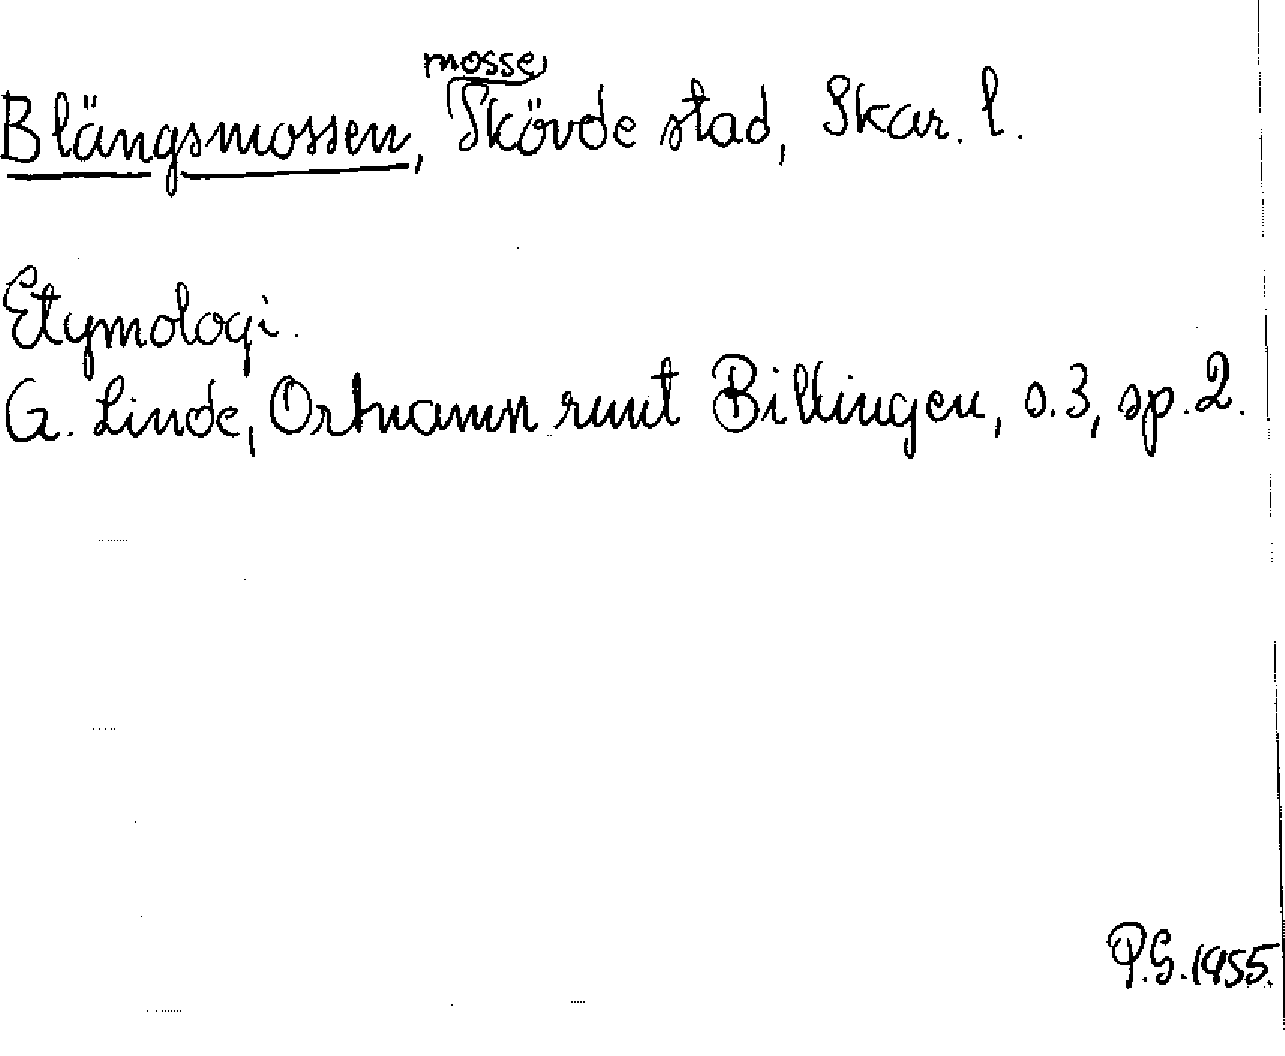 mosse
Blängsmossen, Skövde stad, Skar. l.
Etymologi.
G. Linde, Ortnamn runt Billingen, s. 3, sp. 2.
P.G. 1955.